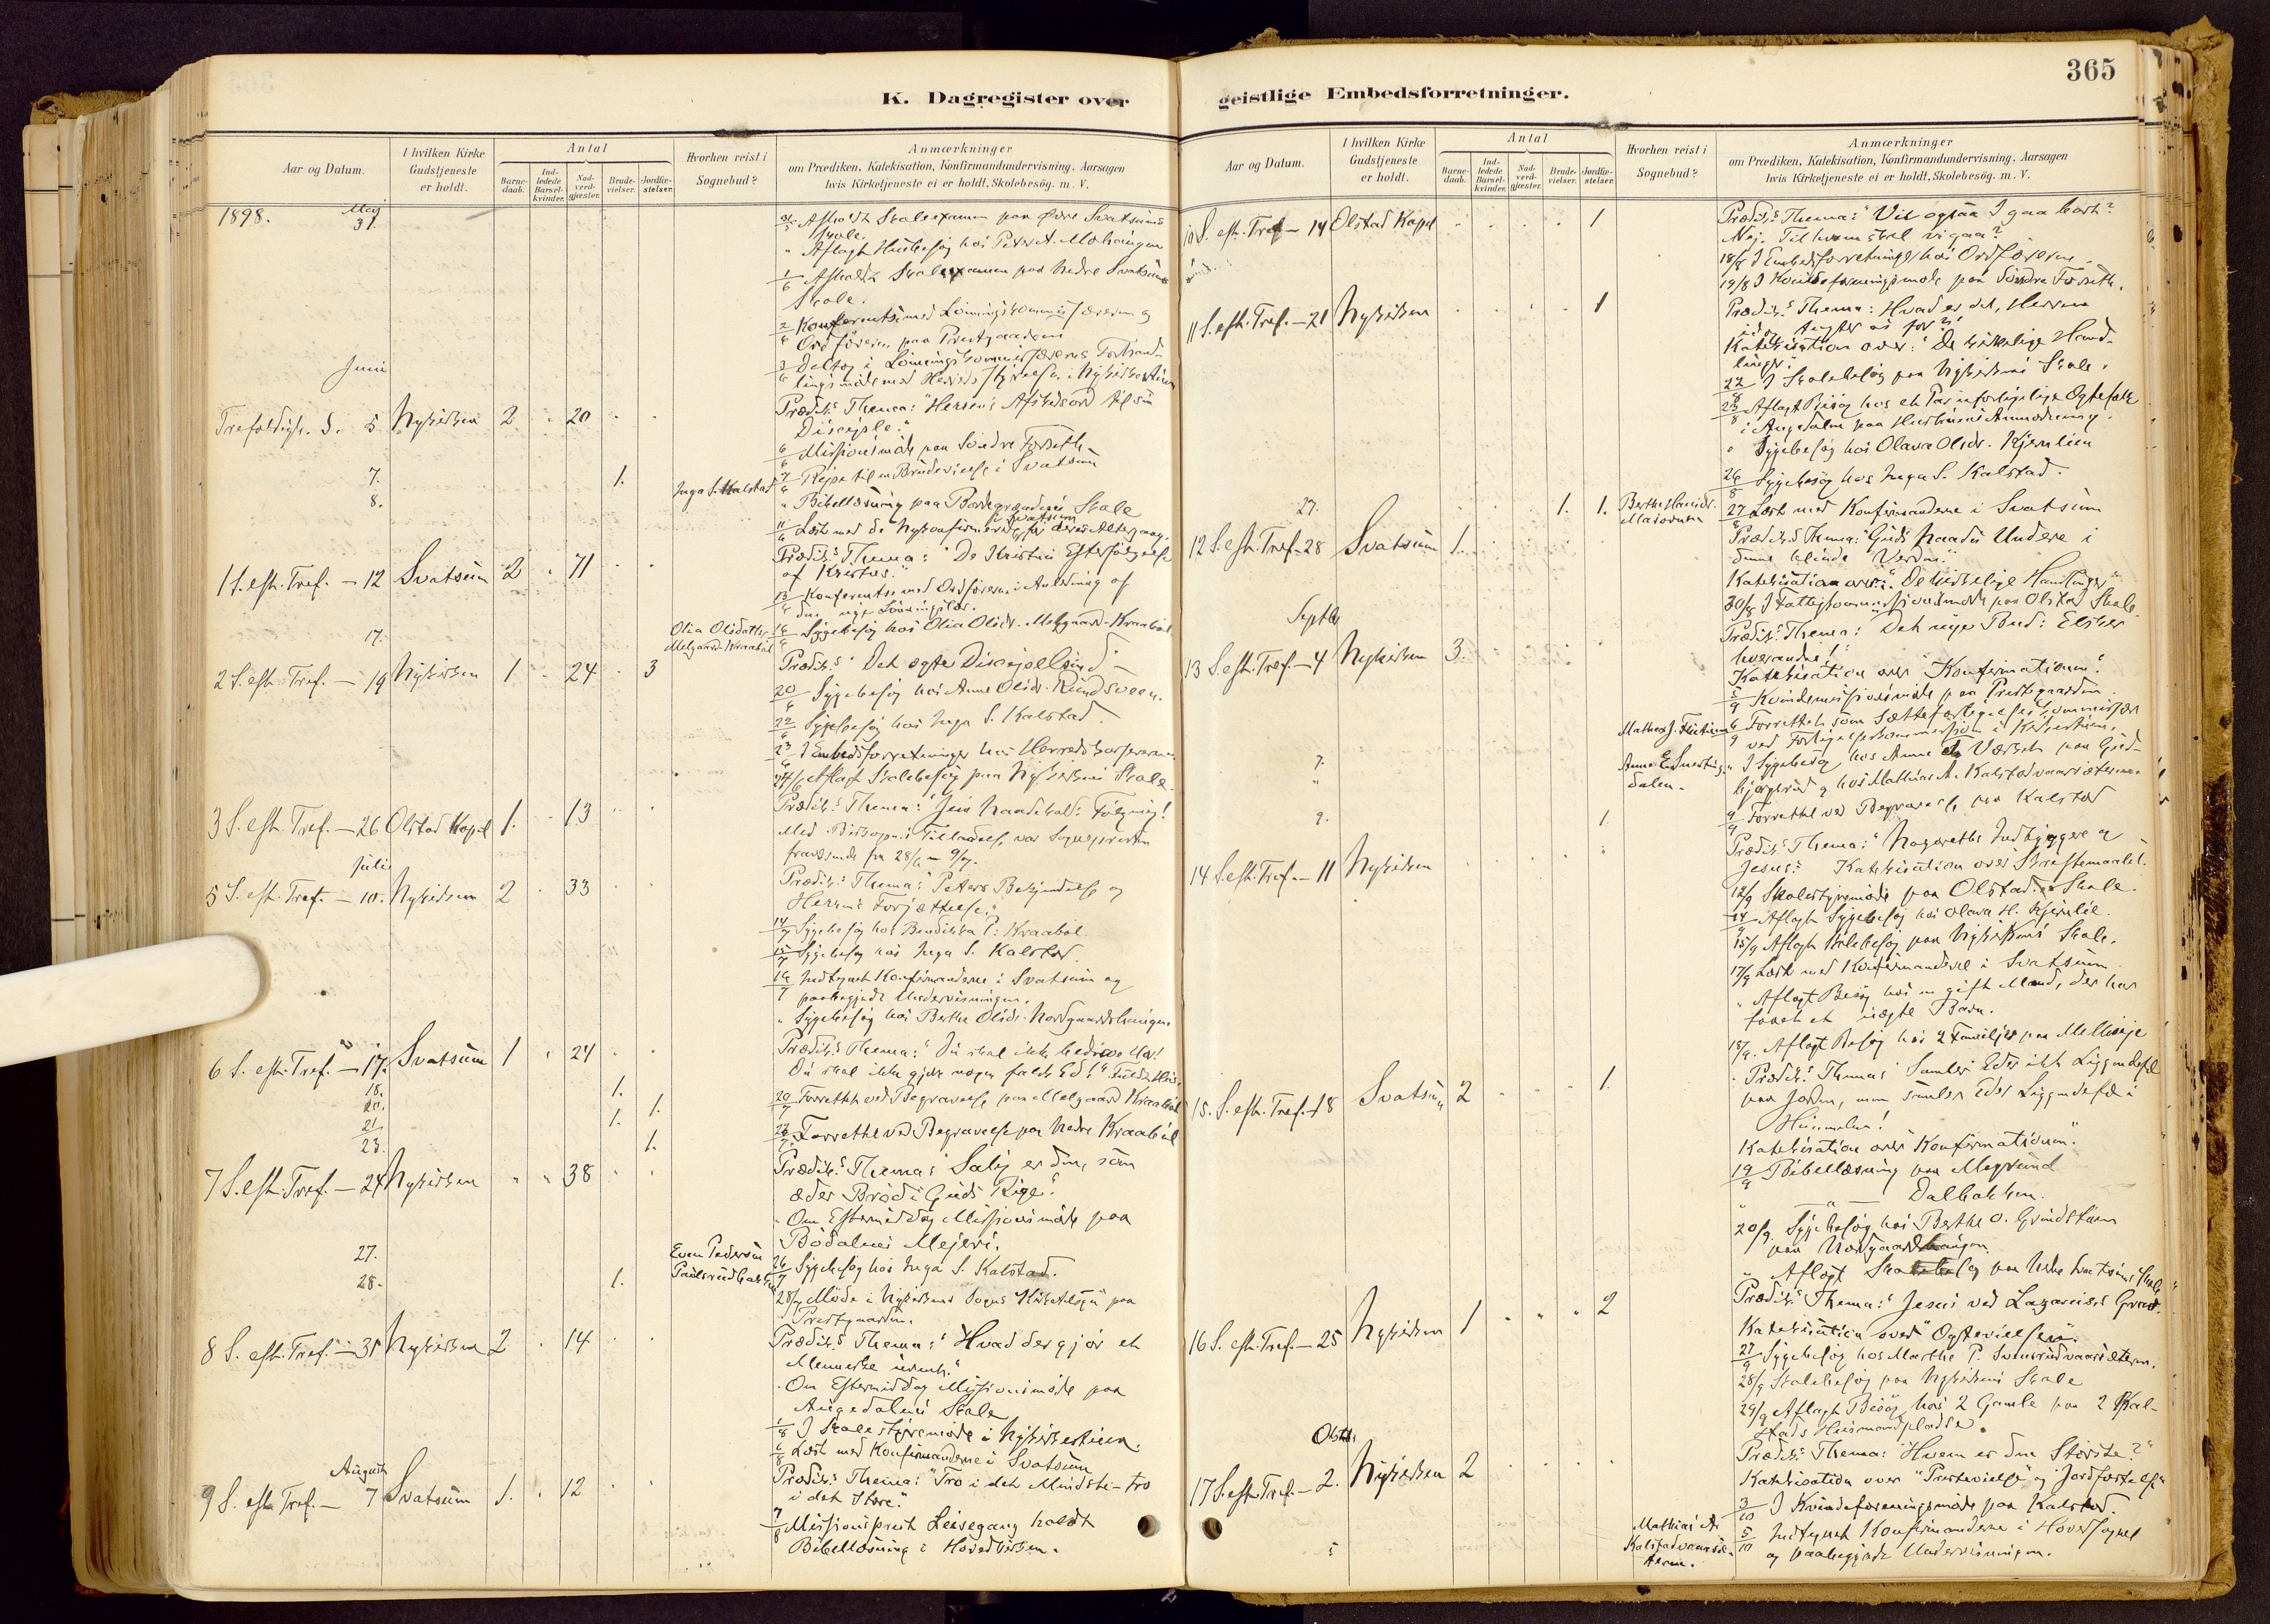 K. Dagregister over
Aar og Datum.
I hvilken Kirke
Gudstjeneste
er holdt.
Antal
Barne-
daab.
Ind-
ledede
Barsel-
kvinder.
Nad-
verd-
gjæster.
Brude-
vielser.
Jordfæ-
stelser.
Hvorhen reist i
Sognebud?
Anmærkninger
om Prædiken, Katekisation, Konfirmandundervisning, Aarsagen
hvis Kirketjeneste ei er holdt, Skolebesög. m. V.
1898. Maj
31.
31/5 Afholdt Skoleexamen paa Øvre Svatsums
Skole.
" Aflagt Husbesøg hos Peter A. Mohaugen
1/6 Afholdt Skoleexamen paa Nedre Svatsums
Skole.
2/6 Konferentse med Lönningskommissæren og
Ordföreren paa Prestgaarden
3/6 Deltog i Lönningskommissærens Forhand-
lingsmöde med Herredsstyrelsen i Nykirkestuen
Juni
Trefoldigh. S. 5 Nykirken 2 " 20 " "
Prædik.s Thema: "Herrens Afskedsord til sin
Disciple."
6/6 Missionsmöde paa Söndre Forseth
7. 1.
7/6 Rejse til en Brudevielse i Svatsum
8. Inga S. Kalstad
" Bibellæsning paa Skole
11/6 Læst med de Nykonfirmerede i Svatsum för deres Altergang.
1 S. eft. Tref. — 12 Svatsum 2 " 71 " "
Prædik.s Thema: "De Kristnes Efterfölgelse
af Kristus."
13/6 Konferentse med Ordföreren i Anledning af
den nye Lönningslov.
17. Olia Olsdatter
Melgaard-Kraabøl
16/6 Sygebesøg hos Olia Olsdr. Melgaard-Kraabøl
2 S. eft. Tref. — 19 Nykirken 1 " 24 " 3
Prædik.s "Det ægte Discipelsind"
20/6 Sygebesøg hos Anne Olsdr. Rundsveen.
22/6 Sygebesøg hos Inga S. Kalstad.
23/6 I Embedsforretninger hos Herredskassereren
24/6 Aflagt Skolebesøg paa Nykirkens Skole.
3 S. eft. Tref. — 26 Olstad Kapel 1. " 13 " "
Prædik.s Thema: "Jesu Naadekald: Følg mig!
Med Biskopens Tilladelse var Sognepresten
fraværende fra 28/6 — 9/7.
Juli
5 S. eft. Tref. — 10. Nykirken 2 " 33 " "
Prædik.s Thema: "Peters Bekjendelse og
Herrens Forjættelse."
14/7 Sygebesøg hos Bendikka P. Kraabøl.
15/7 Sygebesøg hos Inga S. Kalstad.
16/7 Indtegnet Konfirmanderne i Svatsum og
paabegyndt Undervisningen.
" Sygebesøg hos Berthe Olsdr. Nordgaardshaugen.
6 S. eft. Tref. — 17. Svatsum 1 " 24 " "
Prædik.s Thema: "Du skal ikke bedrive Hor!
Du skal ikke gjøre nogen falsk Ed!"
18. 1.
20. 1.
20/7 Forrettet ved Begravelse paa Melgaard Kraabøl
21. 1.
23. 1.
23/7 Forrettet ved Begravelse paa Nedre Kraabøl
7 S. eft. Tref. — 24 Nykirken " " 38 " "
Prædik.s Thema: "Salig er den, som
æder Brød i Guds Rige."
" Om Eftermiddag Missionsmöde paa
Bödalens Mejeri.
27. Even Pedersen
Paulsrudbakken
26/7 Sygebesøg hos Inga S. Kalstad.
28. 1.
28/7 Möde i Nykirkens Sogns Kirketilsyn paa
Prestgaarden.
8 S. eft. Tref. — 31 Nykirken 2 " 14 " "
Prædik.s Thema: "Hvad der gjör et
Menneske urent."
" Om Eftermiddag Missionsmöde paa
Augedalens Skole
1/8 I Skolestyremöde i Nykirkestuen.
6/8 Læst med Konfirmanderne i Svatsum
August
9 S. eft. Tref. — 7 Svatsum 1. " 12 " "
Prædik.s Thema: "Tro i det Mindste — tro
i det Store."
7/8 Missionsprest Leisegang holdt
Bibellæsning i Hovedkirken.
365
geistlige Embedsforretninger.
Aar og Datum.
I hvilken Kirke
Gudstjeneste
er holdt.
Antal
Barne-
daab.
Ind-
ledede
Barsel-
kvinder.
Nad-
verd-
gjæster.
Brude-
vielser.
Jordfæ-
stelser.
Hvorhen reist i
Sognebud?
Anmærkninger
om Prædiken, Katekisation, Konfirmandundervisning, Aarsagen
hvis Kirketjeneste ei er holdt, Skolebesög. m. V.
10 S. eft. Tref. — 14 Olstad Kapel " " " " 1
Prædik.s Thema: "Vil ogsaa I gaa bort?
Nej. Til hvem skal vi gaa?
18/8 I Embedsforretninger hos Ordföreren.
19/8 I Kvindeforeningsmöde paa Söndre Forseth.
11 S. eft. Tref. — 21 Nykirken " " " " 1
Prædik.s Thema: Hvad er det, Herren
idag for?"
Katekisation over: "De kirkelige Hand-
linger."
22/8 I Skolebesøg paa Nykirkens Skole.
23/8 Aflagt Besøg hos et Par uforligelige Egtefolk
i Augedalen paa Hustruens Anmodning.
" Sygebesøg hos Olava Olsdr. Kjernlien
26/8 Sygebesøg hos Inga S. Kalstad.
27. 1. 1. Berthe Hansdr.
27/8 Læst med Konfirmanderne i Svatsum
12 S. eft. Tref. — 28 Svatsum 1.
Prædik.s Thema: "Guds Naades Undere i
denne blinde Verden."
Katekisation over: "De kirkelige Handlinger"
30/8 I Fattigkommissionsmöde paa Olstad Skole
Septbr.
13 S. eft. Tref. — 4 Nykirken 3.
Prædik.s Thema: Det nye Bud: Elsker
hverandre!"
Katekisation over "Konfirmationen".
5/9 Kvindemissionsmöde paa Prestgaarden.
6/9 Forrettet som Sætteforligelseskommissær
ved Forligelseskommission i Kirkestuen.
7. Anne E. Snertings-
dalen.
" I Sygebesøg hos Anne Værket paa Gud-
bjørgsrud og hos Mathias A. Kalstadvaarsæteren
9. 1.
9/9 Forrettet ved Begravelse paa Kalstad
14 S. eft. Tref. — 11 Nykirken
Prædik.s Thema: "Nazareths Indbyggere og
Jesus." Katekisation over Skriftemaalet.
12/9 Skolestyremöde paa Olstad Skole.
14/9 Aflagt Sygebesøg hos Olava H. Kjernlie.
15/9 Aflagt Skolebesøg paa Nykirkens Skole.
17/9 Læst med Konfirmanderne i Svatsum
" Aflagt Besøg hos en gift Mand, der har
faaet et uægte Barn.
18/9. Aflagt Besøg hos 2 Familjer paa Melbeje
15. S. eft. Tref. — 18 Svatsum 2 " " " 1.
Prædik.s Thema: Samler Eder ikke Liggendefæ
paa Jorden, men samler Eder Liggendefæ i
Himmelen!
Katekisation over "Konfirmationen".
19/9 Bibellæsning paa Megrund
" — " — Dalbakken.
20/9. Sygebesøg hos Berthe O. Grindstuen
paa Nordgaardshaugen.
" Aflagt Skolebesøg paa Nedre Svatsums Skole
16 S. eft. Tref. — 25 Nykirken 1 " " " 2
Prædik.s Thema: "Jesus ved Lazaruses Grav.
Katekisation over "Egtevielsen".
27/9 Sygebesøg hos Marthe P. Svensrudvaarsæteren.
28/9 Skolebesøg paa Nykirkens Skole
29/9 Aflagt Besøg hos 2 Gamle paa 2 Kal-
stads Husmandspladse.
Oktbr.
17 S. eft. Tref. — 2. Nykirken 2
Prædik.s Thema: Hvem er den Störste?"
Katekisation over "Prestevielse" og Jordfæstelse
3/10 I Kvindeforeningsmöde paa Kalstad.
5 Mathias A.
Kalstadvaarsæ-
teren.
5/10 Indtegnet Konfirmanderne i Hovedsognet
og paabegyndt Undervisningen.